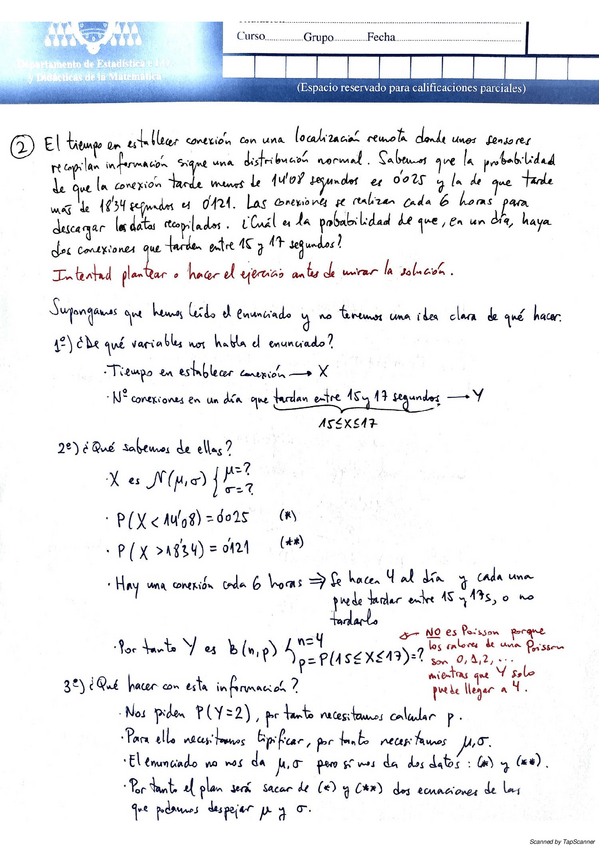 Curso............Grupo............Fecha............
Departamento de Estadística e I.O.
y Didáctica de la Matemática
(Espacio reservado para calificaciones parciales)
② El tiempo en establecer conexión con una localización remota donde unos sensores
recopilan información sigue una distribución normal. Sabemos que la probabilidad
de que la conexión tarde menos de 14'08 segundos es 0'025 y la de que tarde
más de 18'34 segundos es 0'121. Las conexiones se realizan cada 6 horas para
descargar los datos recopilados. ¿Cuál es la probabilidad de que, en un día, haya
dos conexiones que tarden entre 15 y 17 segundos?
Intentad plantear o hacer el ejercicio antes de mirar la solución.
Supongamos que hemos leído el enunciado y no tenemos una idea clara de qué hacer.
1º) ¿De qué variables nos habla el enunciado?
· Tiempo en establecer conexión → X
· Nº conexiones en un día que tardan entre 15 y 17 segundos → Y
15≤X≤17
2º) ¿Qué sabemos de ellas?
· X es N(μ,σ) { μ=?
σ=?
· P(X<14'08)=0'025 (*)
· P(X>18'34)=0'121 (**)
· Hay una conexión cada 6 horas ⇒ Se hacen 4 al día y cada una
puede tardar entre 15 y 17s, o no
tardarlo
· Por tanto Y es B(n,p) { n=4
p=P(15≤X≤17)=?
NO es Poisson porque
los valores de una Poisson
son 0,1,2,...
mientras que Y solo
puede llegar a 4.
3º) ¿Qué hacer con esta información?
· Nos piden P(Y=2), por tanto necesitamos calcular p.
· Para ello necesitamos tipificar, por tanto necesitamos μ,σ.
· El enunciado no nos da μ,σ pero sí nos da dos datos: (*) y (**).
· Por tanto el plan será sacar de (*) y (**) dos ecuaciones de las
que podamos despejar μ y σ.
Scanned by TapScanner